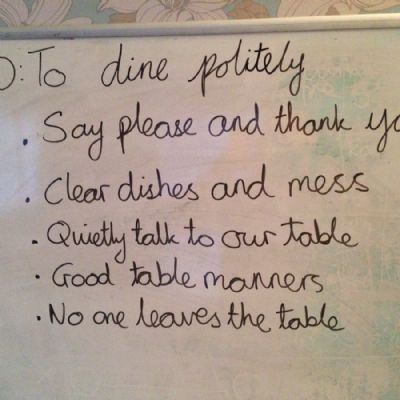 : To dine politely
. Say please and thank yo
. Clear dishes and mess
. Quietly talk to our table
. Good table manners
. No one leaves the table